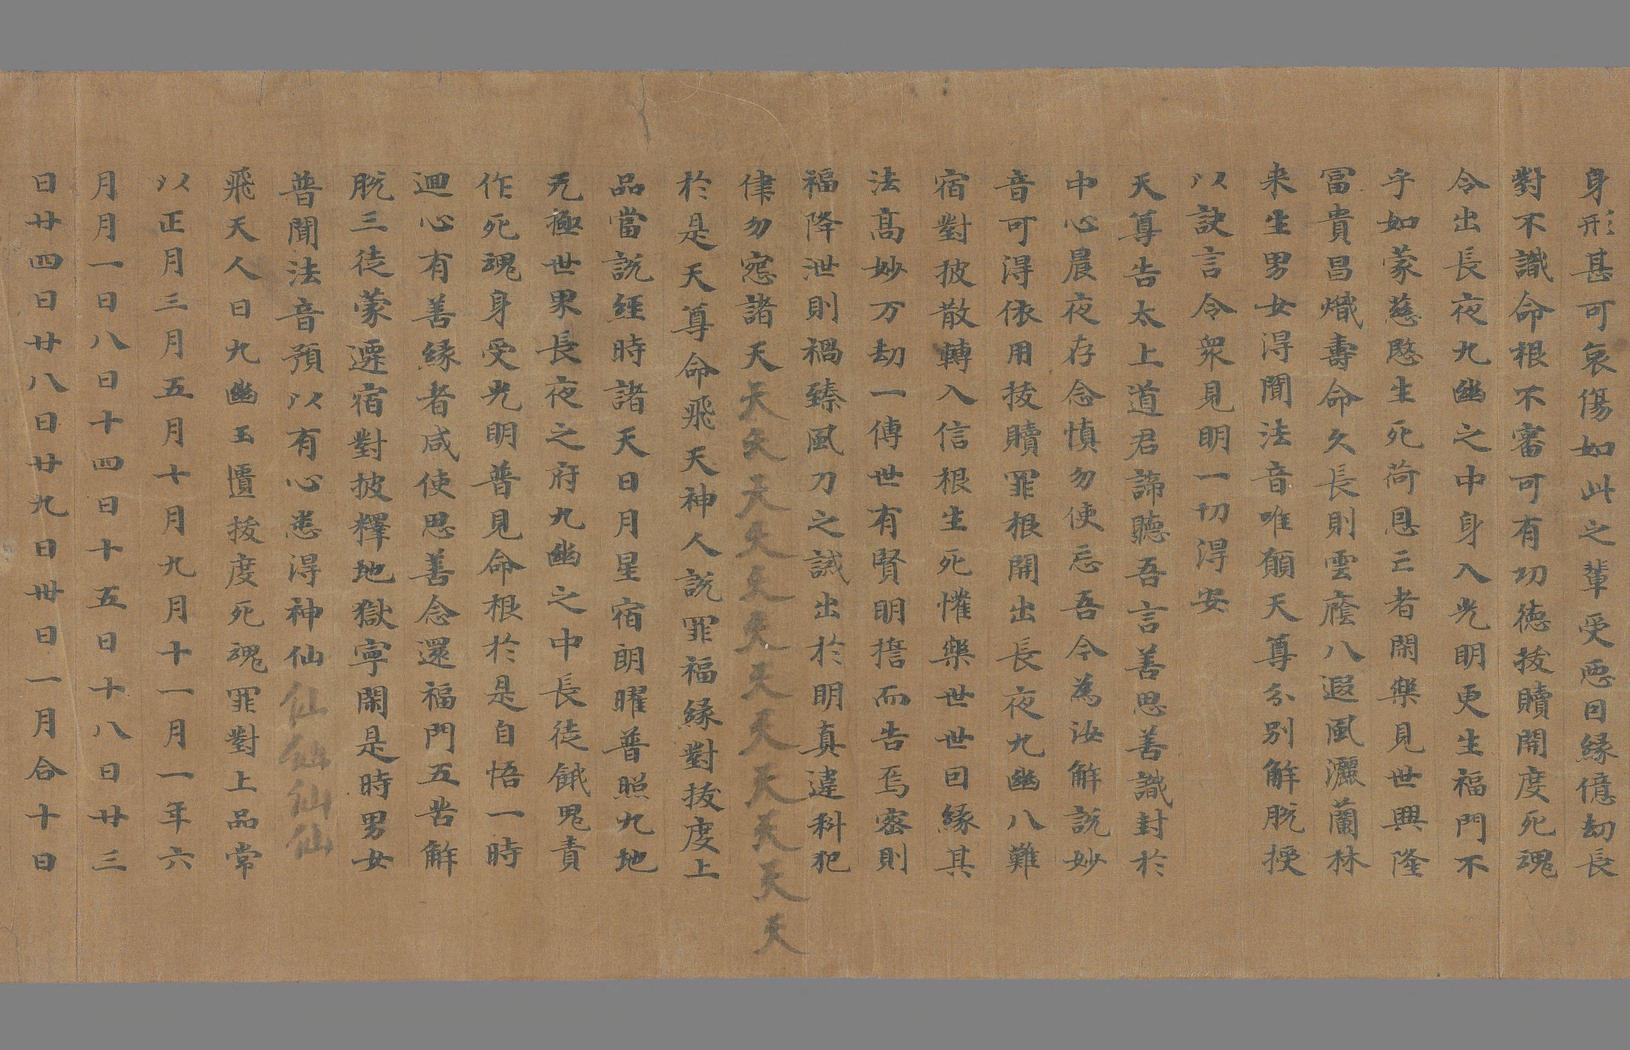 身形甚可哀傷如此之輩受惡因緣億劫長
對不識命根不審可有功德拔贖開度死魂
令出長夜九幽之中身入光明更生福門不
乎如蒙慈愍生死荷恩三者閑樂見世興隆
冨貴昌熾壽命久長則雲䕃八遐風灑蘭林
来生男女淂聞法音唯願天尊分別解脫授
以訣言令衆見明一切淂安
天尊告太上道君諦聽吾言善思善識封於
中心晨夜存念慎勿使忘吾今為汝解說妙
音可淂依用拔贖罪根開出長夜九幽八難
宿對披散轉入信根生死懽樂世世因緣其
法髙妙万劫一傳世有賢明擔而告焉密則
福降泄則禍臻風刀之誡出於明真違科犯
律勿怨諸天天天天天天天天天天天天天
於是天尊命飛天神人說罪福緣對拔度上
品當說經時諸天日月星宿朗曜普照九地
无極世界長夜之府九幽之中長徒餓鬼責
作死魂身受光明普見命根於是自悟一時
迴心有善緣者咸使思善念還福門五苦解
脫三徒蒙遷宿對披釋地獄寧閑是時男女
普聞法音預以有心悉淂神仙仙仙仙仙
飛天人曰九幽玉匱拔度死魂罪對上品常
以正月三月五月七月九月十一月一年六
月月一日八日十四日十五日十八日廿三
日廿四日廿八日廿九日卅日一月合十日